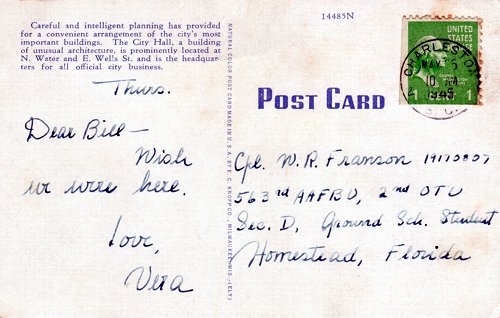 Careful and intelligent planning has provided
for a convenient arrangement of the city's most
important buildings. The City Hall, a building
of unusual architecture, is prominently located at
N. Water and E. Wells St. and is the headquar-
ters for all official city business.
Thurs.
Dear Bill—
Wish
we were here.
Love,
Vera
NATURAL COLOR POST CARD MADE IN U.S.A. BY E. C. KROPP CO., MILWAUKEE, WIS. (ELY)
14485N
POST CARD
UNITED
STATES
1 CENT 1
CHARLESTON
1945
S. C.
Cpl. W. R. Franson 19115857
563rd AAFBU, 2nd OTU
Sec. D, Ground Sch. Student
Homestead, Florida